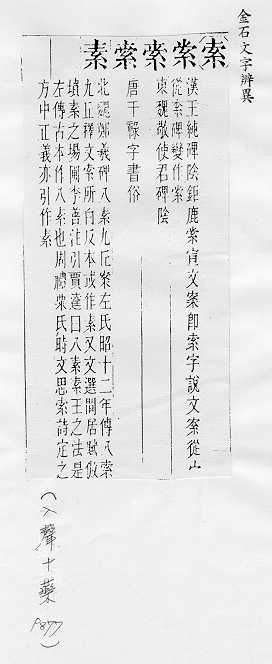 金石文字辨異
索
素
漢王純碑陰鉅鹿宵文案即索字說文案從
從糸碑變作
東魏敬使君碑陰
唐干祿字書俗
北魏鄭義碑八素九丘案左氏昭十二年傳八索
九丘釋文索所白反本或作素又文選閒居賦傲
墳素之場圃李善注引賈逵曰八素素王之法是
左傳古本作八素也周禮栗氏時文思索詩定之
方中正義亦引作素
(入聲十藥 P877)